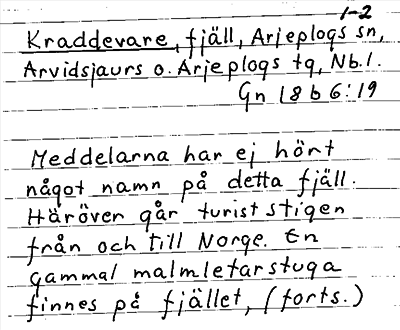 1-2
Kraddevare, fjäll, Arjeplogs sn,
Arvidsjaurs o. Arjeplogs tg, Nb.l.
Gn 18 b 6:19
Meddelarna har ej hört
något namn på detta fjäll.
Häröver går turiststigen
från och till Norge. En
gammal malmletarstuga
finnes på fjället, (forts.)